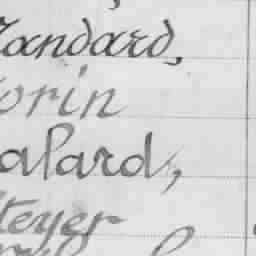 Tandard,
orin
alard,
teyer